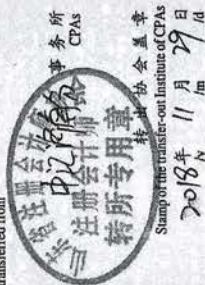 transferred from
事务所
CPAs
注册会计师
转所专用章
转出协会盖章
Stamp of the transfer-out Institute of CPAs
2018年 11月 29日
/y /m /d